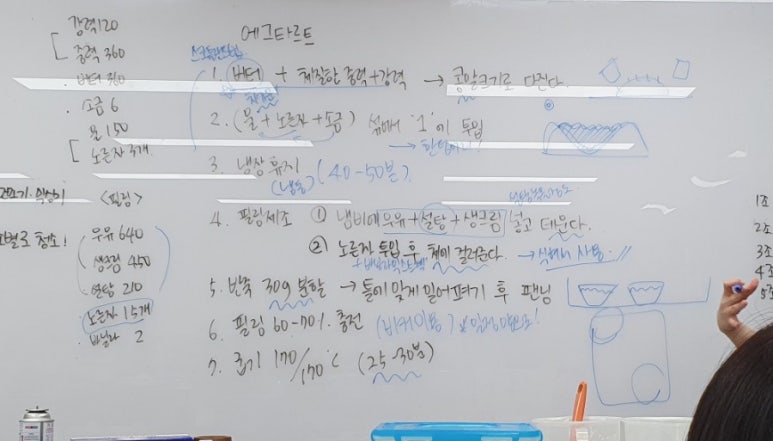 에그타르트
강력 120
중력 360
버터 360
소금 6
물 150
노른자 3개
<필링>
우유 640
생크림 450
설탕 210
노른자 15개
바닐라 2
1. 버터 + 체질한 중력+강력 → 콩알크기로 다진다.
차가운
2. (물+노른자+소금) 섞어서 '1'에 투입
→ 한덩어리!
3. 냉장휴지 (40-50분)
(냉동)
4. 필링제조 ① 냄비에 우유+설탕+생크림 넣고 데운다.
② 노른자 투입 후 체에 걸러준다. → 식혀서 사용!
5. 반죽 30g 분할 → 틀에 맞게 밀어펴기 후 팬닝
6. 필링 60-70% 충전 (비커이용)
7. 굽기 170/170℃ (25-30분)
1조
2조
3조
4조
5조